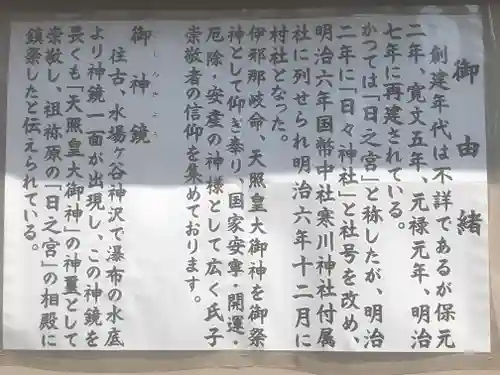 御由緒
創建年代は不詳であるが保元
二年、寛文五年、元禄元年、明治
七年に再建されている。
かつては「日之宮」と称したが、明治
二年に「日々神社」と社号を改め、
明治六年国幣中社寒川神社付属
社に列せられ明治六年十二月に
村社となった。
伊邪那岐命、天照皇大御神を御祭
神として仰ぎ奉り、国家安寧・開運・
厄除・安産の神様として広く氏子
崇敬者の信仰を集めております。
御神鏡
往古、水場ヶ谷神沢で瀑布の水底
より神鏡一面が出現し、この神鏡を
畏くも「天照皇大御神」の神璽として
崇敬し、祖祢原の「日之宮」の相殿に
鎮祭したと伝えられている。